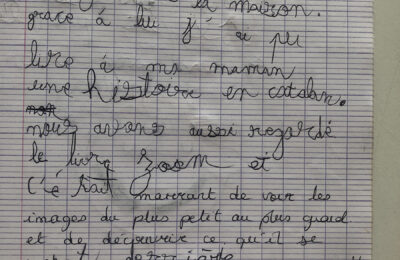 la maison.
grace à lui j' ai pu
lire à ma maman
une histoire en catalan.
nous avons aussi regardé
le livre zoom et
c'é tait marrant de voir les
images du plus petit au plus grand
et de découvrir ce qu'il se